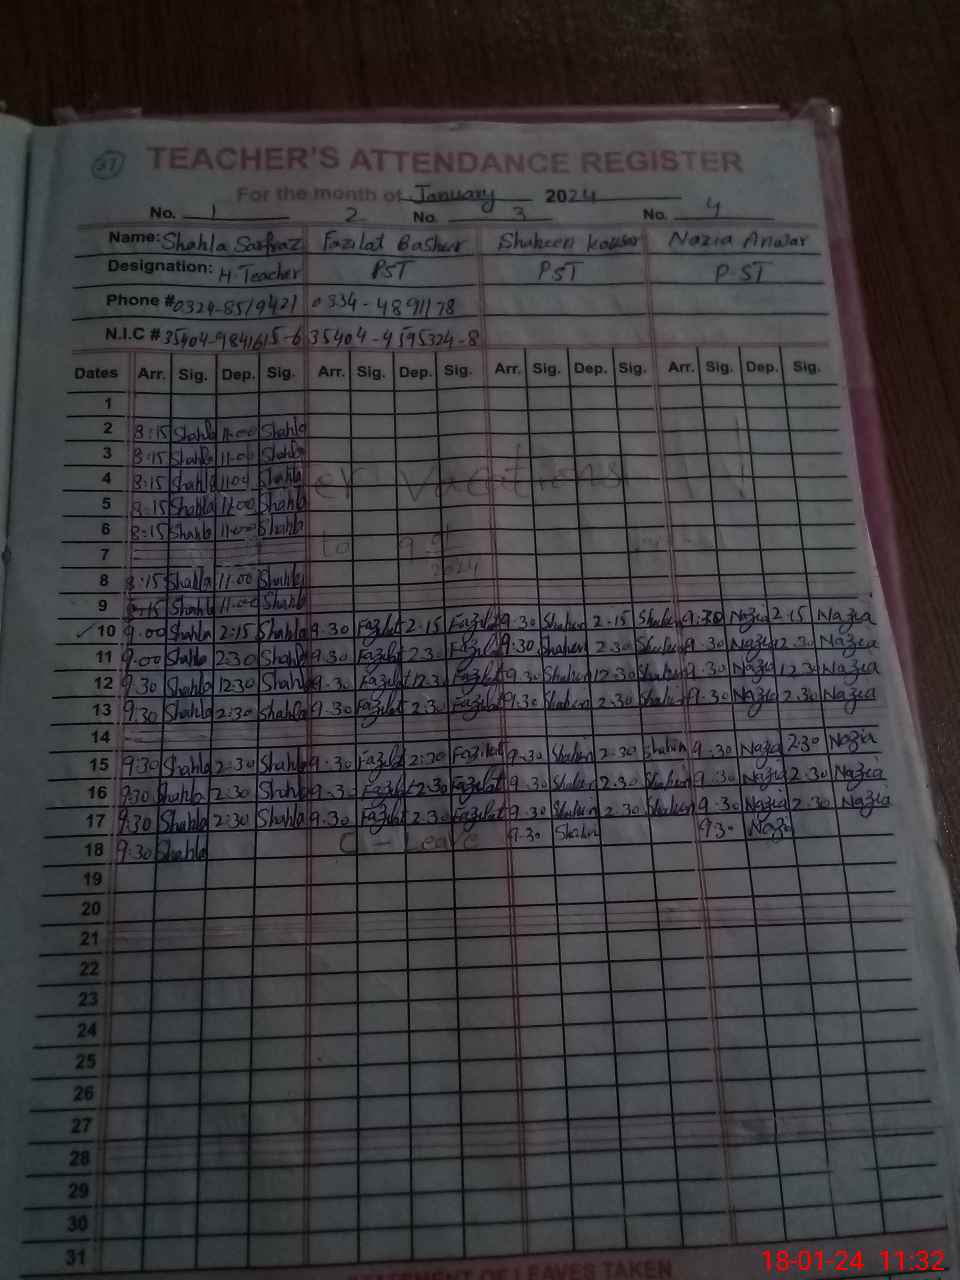 37
TEACHER'S ATTENDANCE REGISTER
For the month of January 2024
No. 1 2 No. 3 No. 4
Name: Shahla Sarfraz Fazilat Basher Shaheen kousar Nazia Anwar
Designation: H Teacher PST PST P ST
Phone # 0324-8519421 0334-4891178
N.I.C # 35404-9841615-6 35404-4595324-8
Dates Arr. Sig. Dep. Sig. Arr. Sig. Dep. Sig. Arr. Sig. Dep. Sig. Arr. Sig. Dep. Sig.
1
2 8:15 Shahla 11:00 Shahla
3 8:15 Shahla 11:00 Shahla
4 8:15 Shahla 11:00 Shahla er Vacations
5 8:15 Shahla 11:00 Shahla
6 8:15 Shahla 11:00 Shahla
7 to 9
2024
8 8:15 Shahla 11:00 Shahla
9 8:15 Shahla 11:00 Shahla
10 9.00 Shahla 2:15 Shahla 9.30 Fazilat 2.15 Fazilat 9.30 Shaheen 2.15 Shaheen 9:30 Nazia 2.15 Nazia
11 9.00 Shahla 2:30 Shahla 9.30 Fazilat 2.30 Fazilat 9:30 Shaheen 2.30 Shaheen 9.30 Nazia 2.30 Nazia
12 9.30 Shahla 12.30 Shahla 9.30 Fazilat 12.30 Fazilat 9.30 Shaheen 12.30 Shaheen 9.30 Nazia 12.30 Nazia
13 9.30 Shahla 2:30 Shahla 9.30 Fazilat 2.30 Fazilat 9.30 Shaheen 2.30 Shaheen 9.30 Nazia 2.30 Nazia
14
15 9:30 Shahla 2:30 Shahla 9.30 Fazilat 2:30 Fazilat 9.30 Shahin 2.30 Shahin 9.30 Nazia 2.30 Nazia
16 9:30 Shahla 2.30 Shahla 9.30 Fazilat 2.30 Fazilat 9.30 Shaheen 2.30 Shaheen 9.30 Nazia 2.30 Nazia
17 9:30 Shahla 2:30 Shahla 9.30 Fazilat 2.30 Fazilat 9.30 Shaheen 2.30 Shaheen 9.30 Nazia 2.30 Nazia
18 9.30 Shahla C - Leave 9.30 Shahin 9.30 Nazi
19
20
21
22
23
24
25
26
27
28
29
30
31
LEAVES TAKEN
18-01-24 11:32